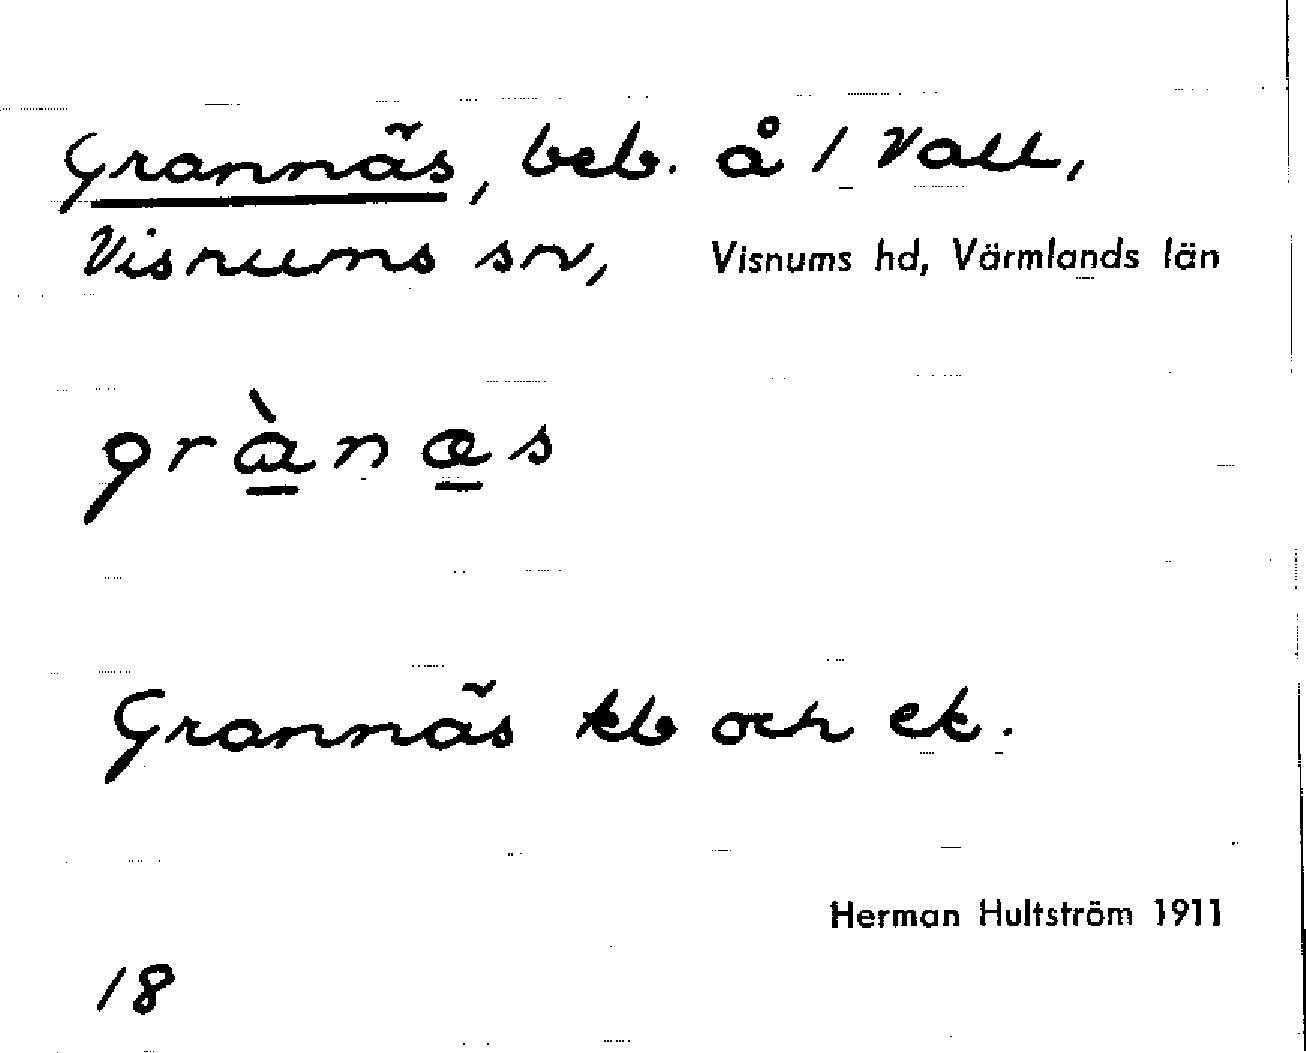 Grannäs, beb. å 1 Vall,
Visnums sn, Visnums hd, Värmlands län
grànæs
Grannäs kb och ek.
Herman Hultström 1911
18